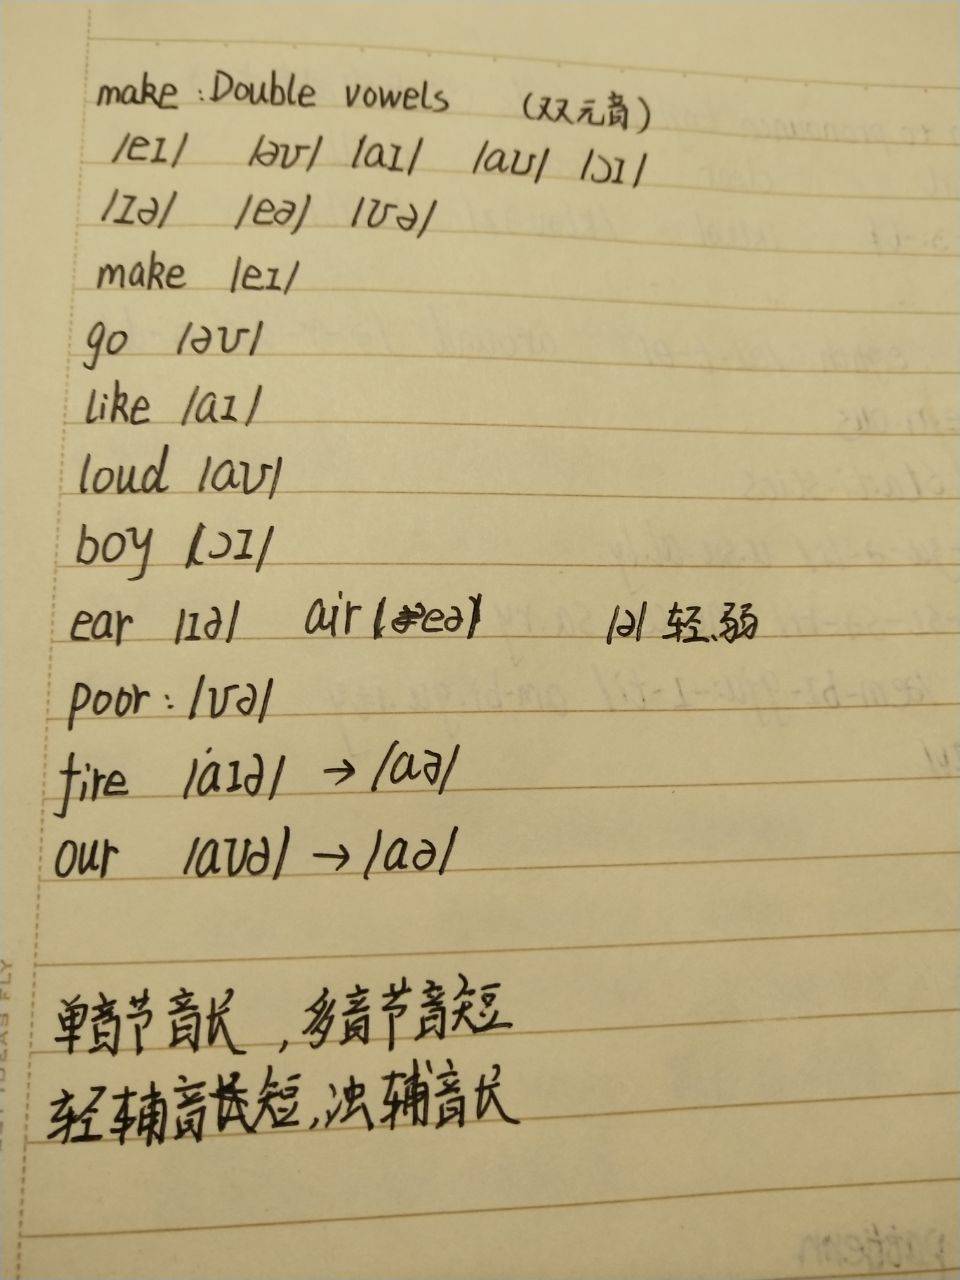 make : Double vowels (双元音)
/eɪ/ /əʊ/ /aɪ/ /aʊ/ /ɔɪ/
/ɪə/ /eə/ /ʊə/
make /eɪ/
go /əʊ/
like /aɪ/
loud /aʊ/
boy /ɔɪ/
ear /ɪə/ air /eə/ /ə/ 轻、弱
poor : /ʊə/
fire /aɪə/ → /aə/
our /aʊə/ → /aə/
单音节音长，多音节音短
轻辅音长短，浊辅音长
pattern